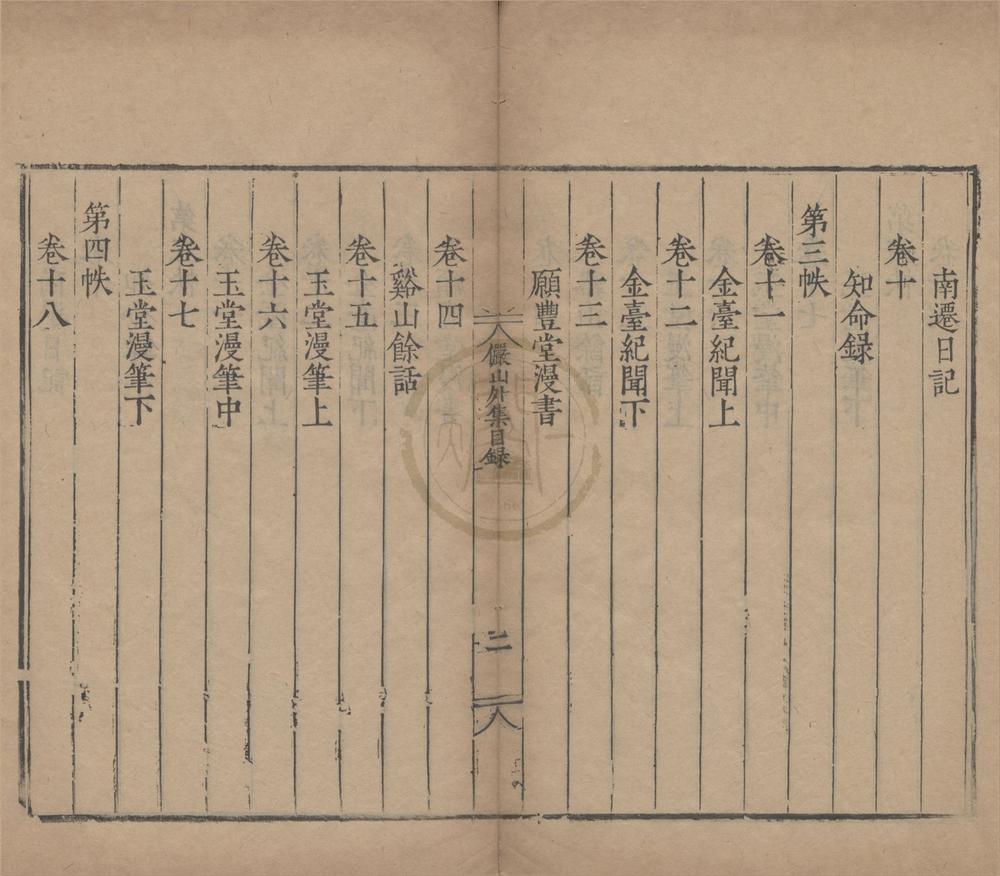 南遷日記
卷十
知命錄
第三帙
卷十一
金臺紀聞上
卷十二
金臺紀聞下
卷十三
願豐堂漫書
儼山外集目録
二
卷十四
谿山餘話
卷十五
玉堂漫筆上
卷十六
玉堂漫筆中
卷十七
玉堂漫筆下
第四帙
卷十八